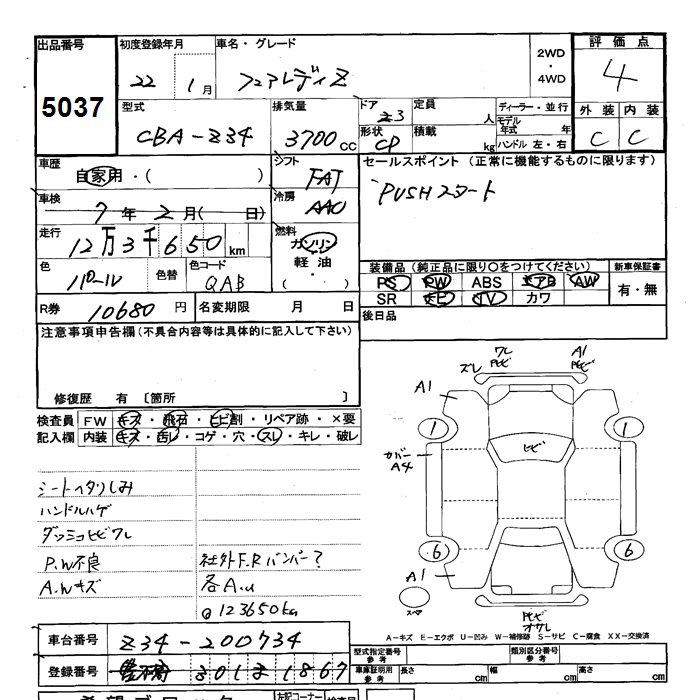 出品番号 初度登録年月 車名・グレード 2WD・4WD 評価点
5037 22 1月 フェアレディZ 4
型式 排気量 ドア 定員 人 ディーラー・並行 外装 内装
CBA-Z34 3700cc 3 モデル年式 年 C C
形状 CP 積載 kg ハンドル 左・右
車歴 自家用・( ) シフト FA7 セールスポイント(正常に機能するものに限ります)
車検 7年2月( 日) 冷房 AAC PUSHスタート
走行 12万3千650km 燃料 ガソリン
色 パール 色替 色コード QAB 軽油・( )
装備品(純正品に限り○をつけてください) 新車保証書
PS PW ABS エアB AW 有・無
SR ナビ TV カワ
R券 10680円 名変期限 月 日 後日品
注意事項申告欄(不具合内容等は具体的に記入して下さい)
修復歴 有 [箇所 ]
検査員記入欄 FW キズ・飛石・ヒビ割・リペア跡・×要
内装 キズ・汚レ・コゲ・穴・スレ・キレ・破レ
シートヘタリしみ
ハンドルハゲ
ダッシュヒビワレ
P.W不良 社外F.Rバンパー?
A.Wキズ 各A.u
@123650km
ズレ ワレ A1
A1
1 1
カバー A4 ヒビ
6 6
A1
スペア
A-キズ E-エクボ U-凹み W-補修跡 S-サビ C-腐食 XX-交換済
車台番号 Z34-200734
登録番号 301ま1867
型式指定番号 参考 類別区分番号 参考
車庫証明用 参考 長さ cm 幅 cm 高さ cm